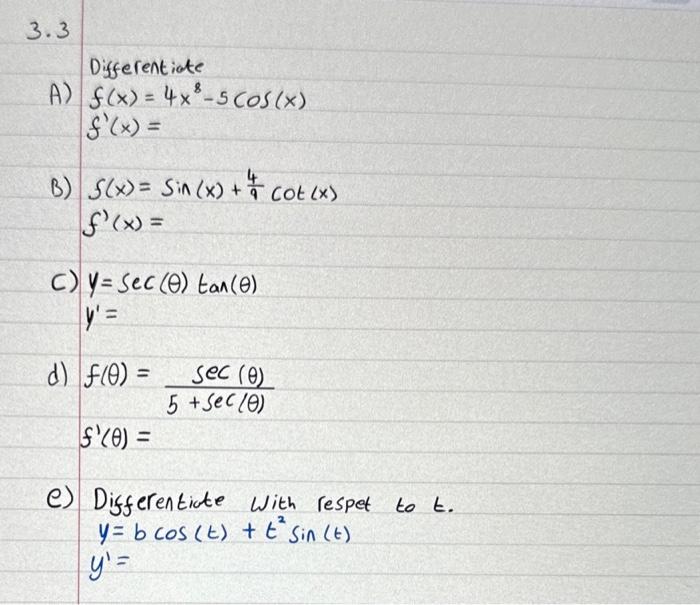 3.3
Differentiate
A) f(x) = 4x⁸ - 5 cos(x)
f'(x) =
B) f(x) = Sin(x) + 4/9 cot(x)
f'(x) =
C) y = sec(θ) tan(θ)
y' =
d) f(θ) = sec(θ) / 5 + sec(θ)
f'(θ) =
e) Differentiate with respet to t.
y = b cos(t) + t² sin(t)
y' =